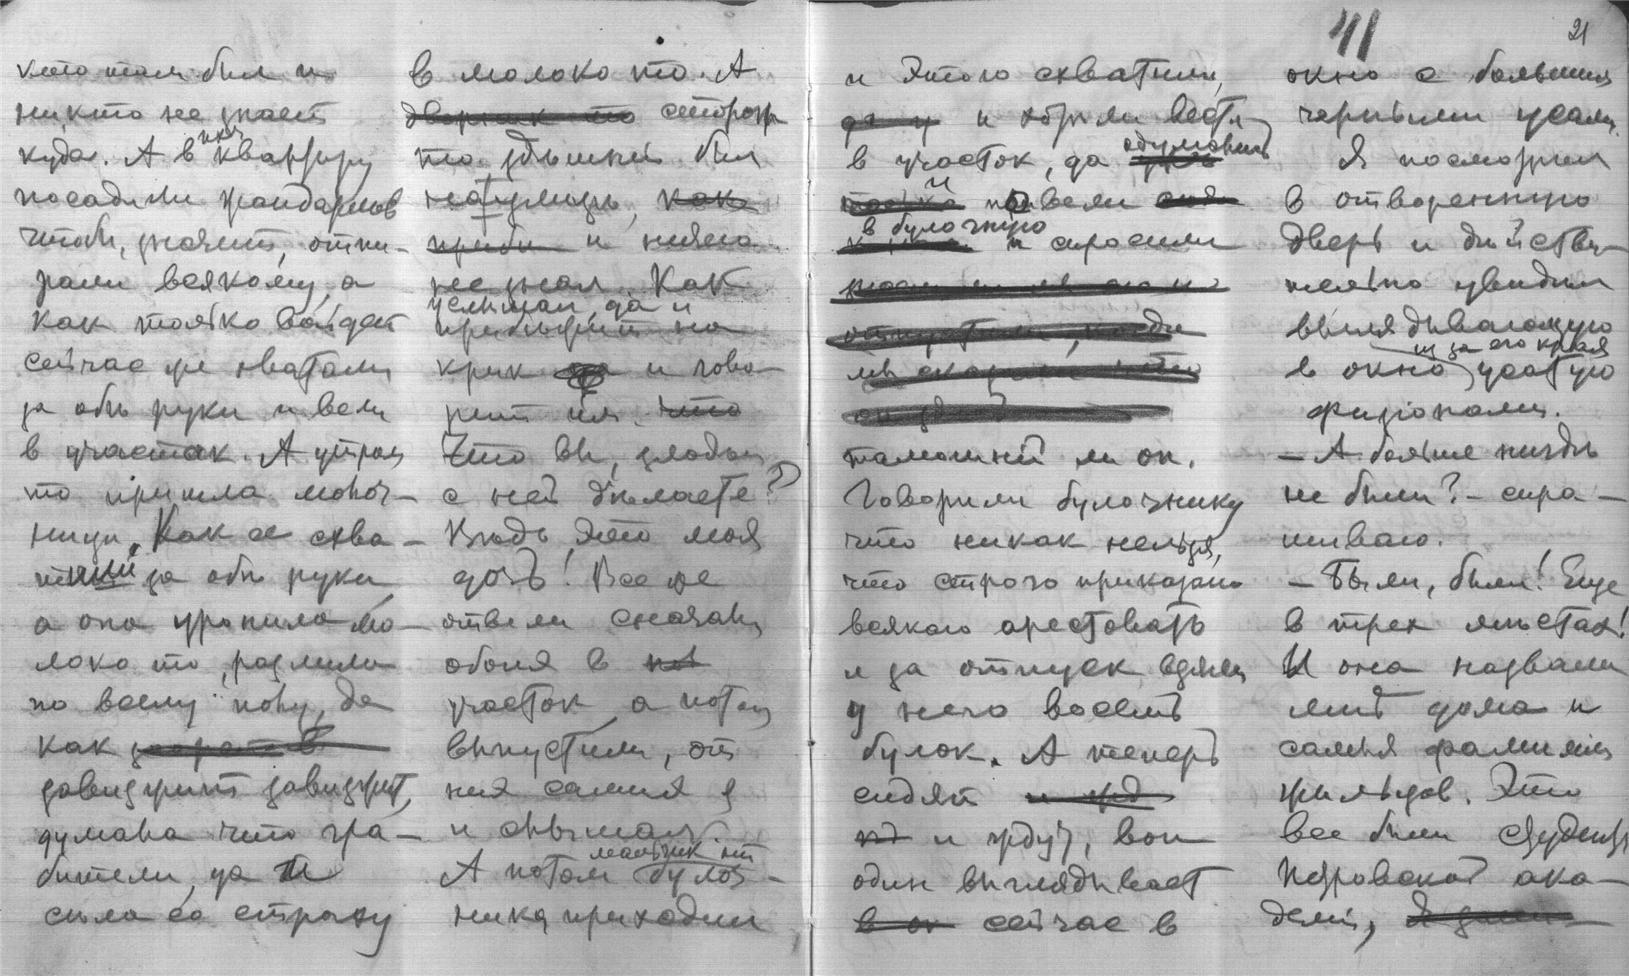 кто там был и
никто не знает
куда. А в ихн квартиру
посадили жандармов
чтоб, значит, отпи-
рали всякому, а
как только войдет
сейчас же хватали
за обе руки и вели
в участок. А утром
то пришла молоч-
ница. Как ее схва-
тили за обе руки
а она уронила мо-
локо то, разлила
по всему полу, да
как
завизжит завизжит,
думала что гра-
бители, да и
села со страху
в молоко то. А
дворник то сторож
то здешний был
и ничего
не знал. Как
услышал, да и
прибежит на
крик и гово-
рит им. что
Что вы, злодеи
с ней делаете?
Ведь это моя
дочь! Все же
отвели сначала
обоих в
участок а потом
выпустили, от
них самих я
и слышала.
А потом мальчик от булоч-
ника приходил
и этого схватили,
и хотели вести
в участок, да одумались
и повели
в булочную и спросили
тамошний ли он.
Говорили булочнику
что никак нельзя,
что строго приказано
всякого арестовать
и за отпуск взяли
у него восемь
булок. А теперь
сидят
и ждут, вон
один выглядывает
сейчас в
41
21
окно с большими
черными усами.
Я посмотрел
в отворенную
дверь и действи-
тельно увидел
выглядывающую
из за его края
в окно усатую
физиономию.
– А больше нигде
не были? – спра-
шиваю.
– Были, были! Еще
в трех местах!
И она назвала
мне дома и
самыя фамилии
жильцов. Это
все были студенты
Петровской ака-
демии,